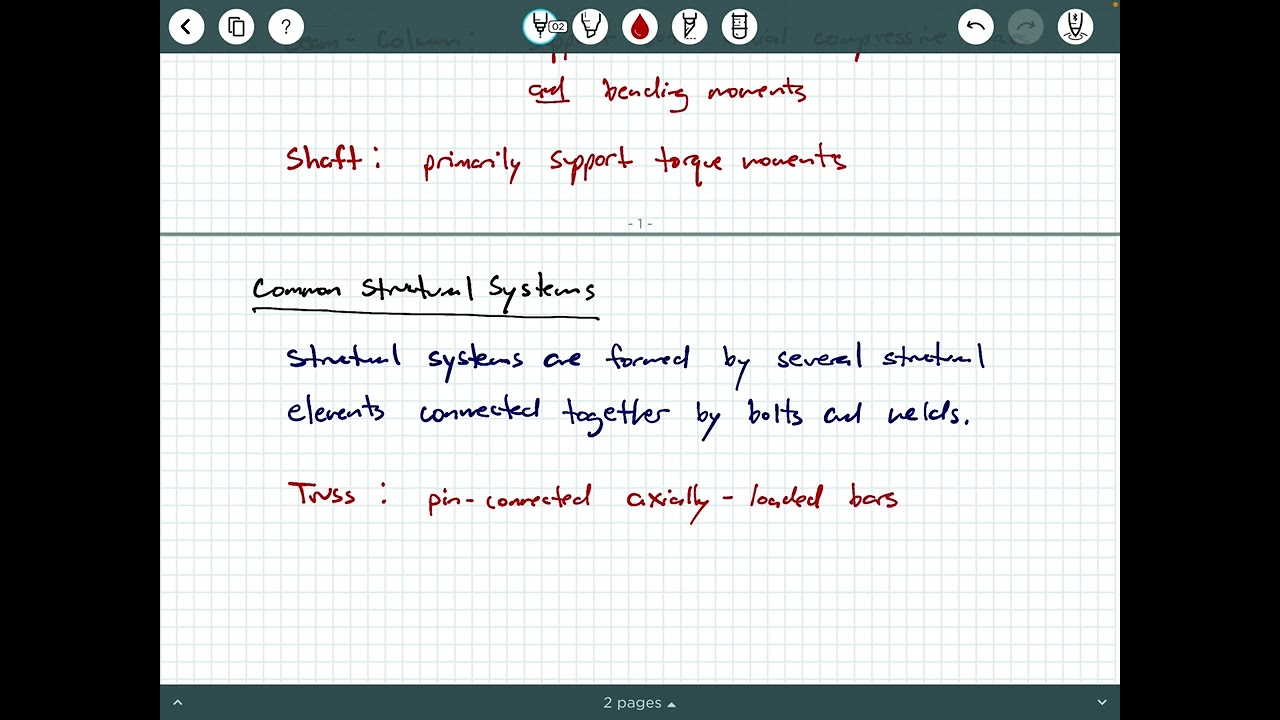 ? 02
Beam-Column: compressive
and bending moments
Shaft: primarily support torque moments
- 1 -
Common Structural Systems
Structural systems are formed by several structural
elements connected together by bolts and welds.
Truss: pin-connected axially-loaded bars
2 pages